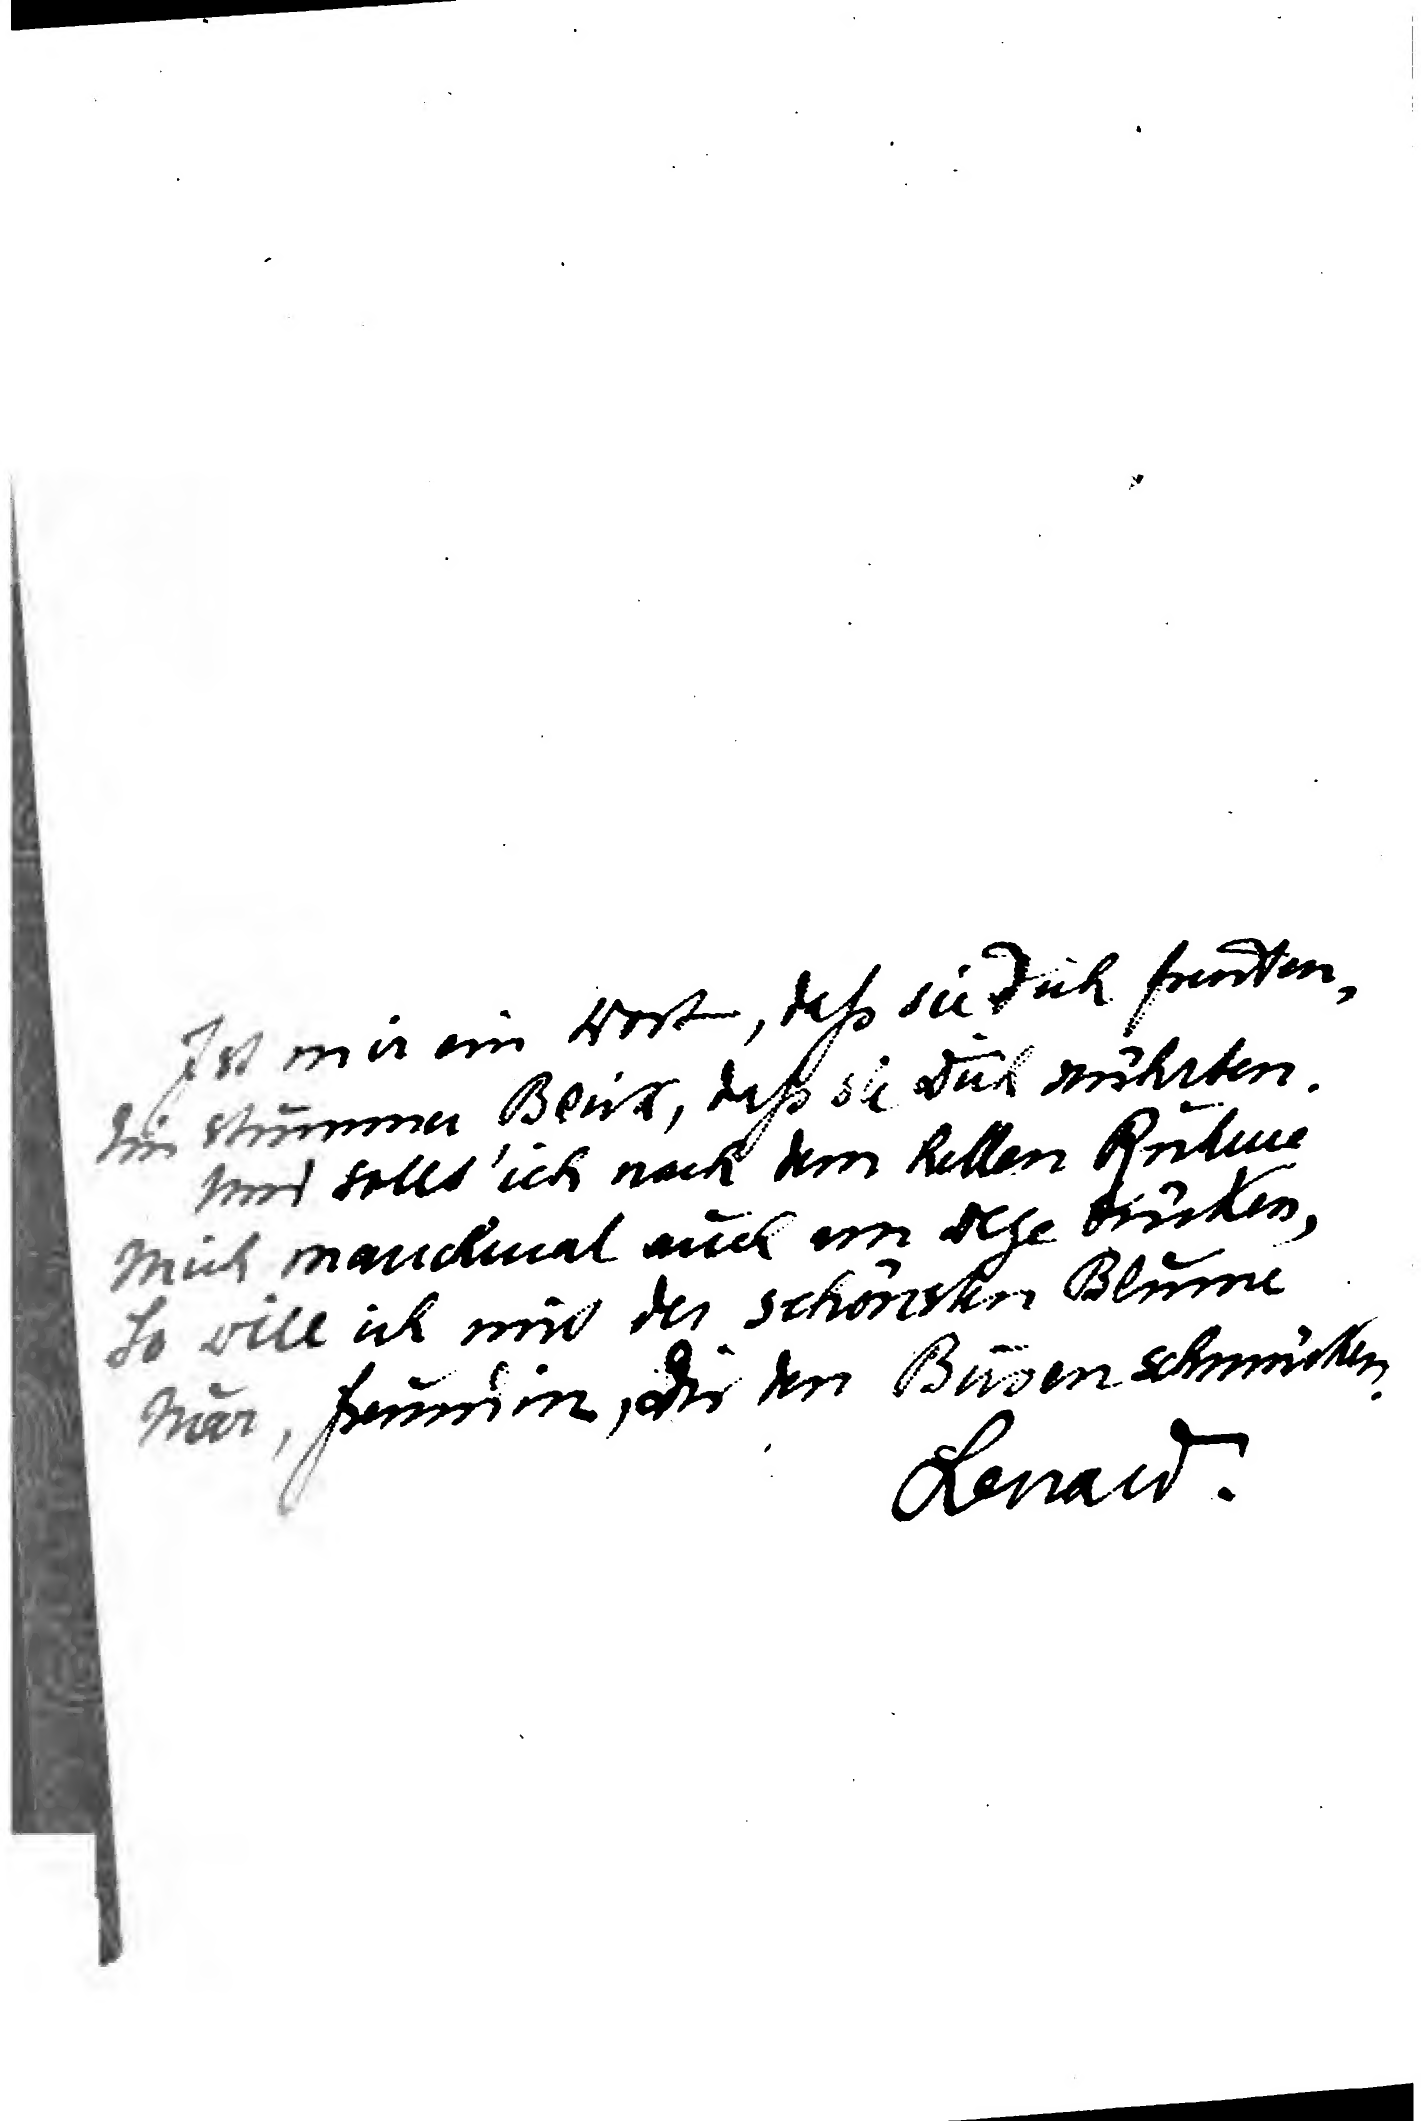 Ist mir ein Wort, daß sie Dich freuten,
Ein stummer Blick, daß sie Dich rührten.
Und sollt' ich nach dem hellen Ruhme
Mich manchmal auch am Wege bücken,
So will ich mit der schönsten Blume
Nur, Freundin, Dir den Busen schmücken.
Lenard.